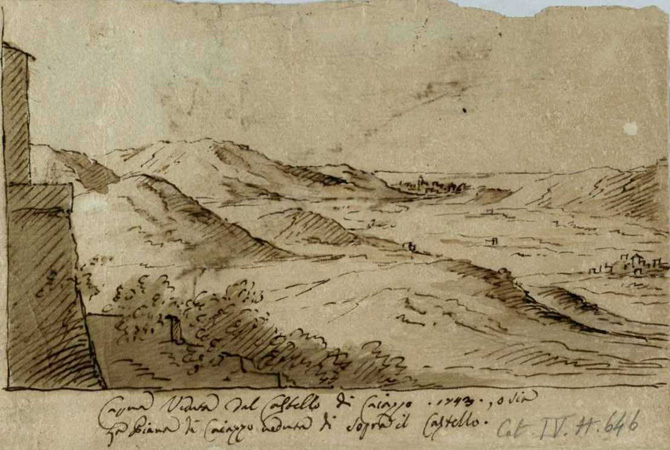 Capua Veduta dal Castello di Caiazzo . 1743 . , o sia
la Piana di Caiazzo veduta di sopra il Castello.
Cat. IV. H. 646